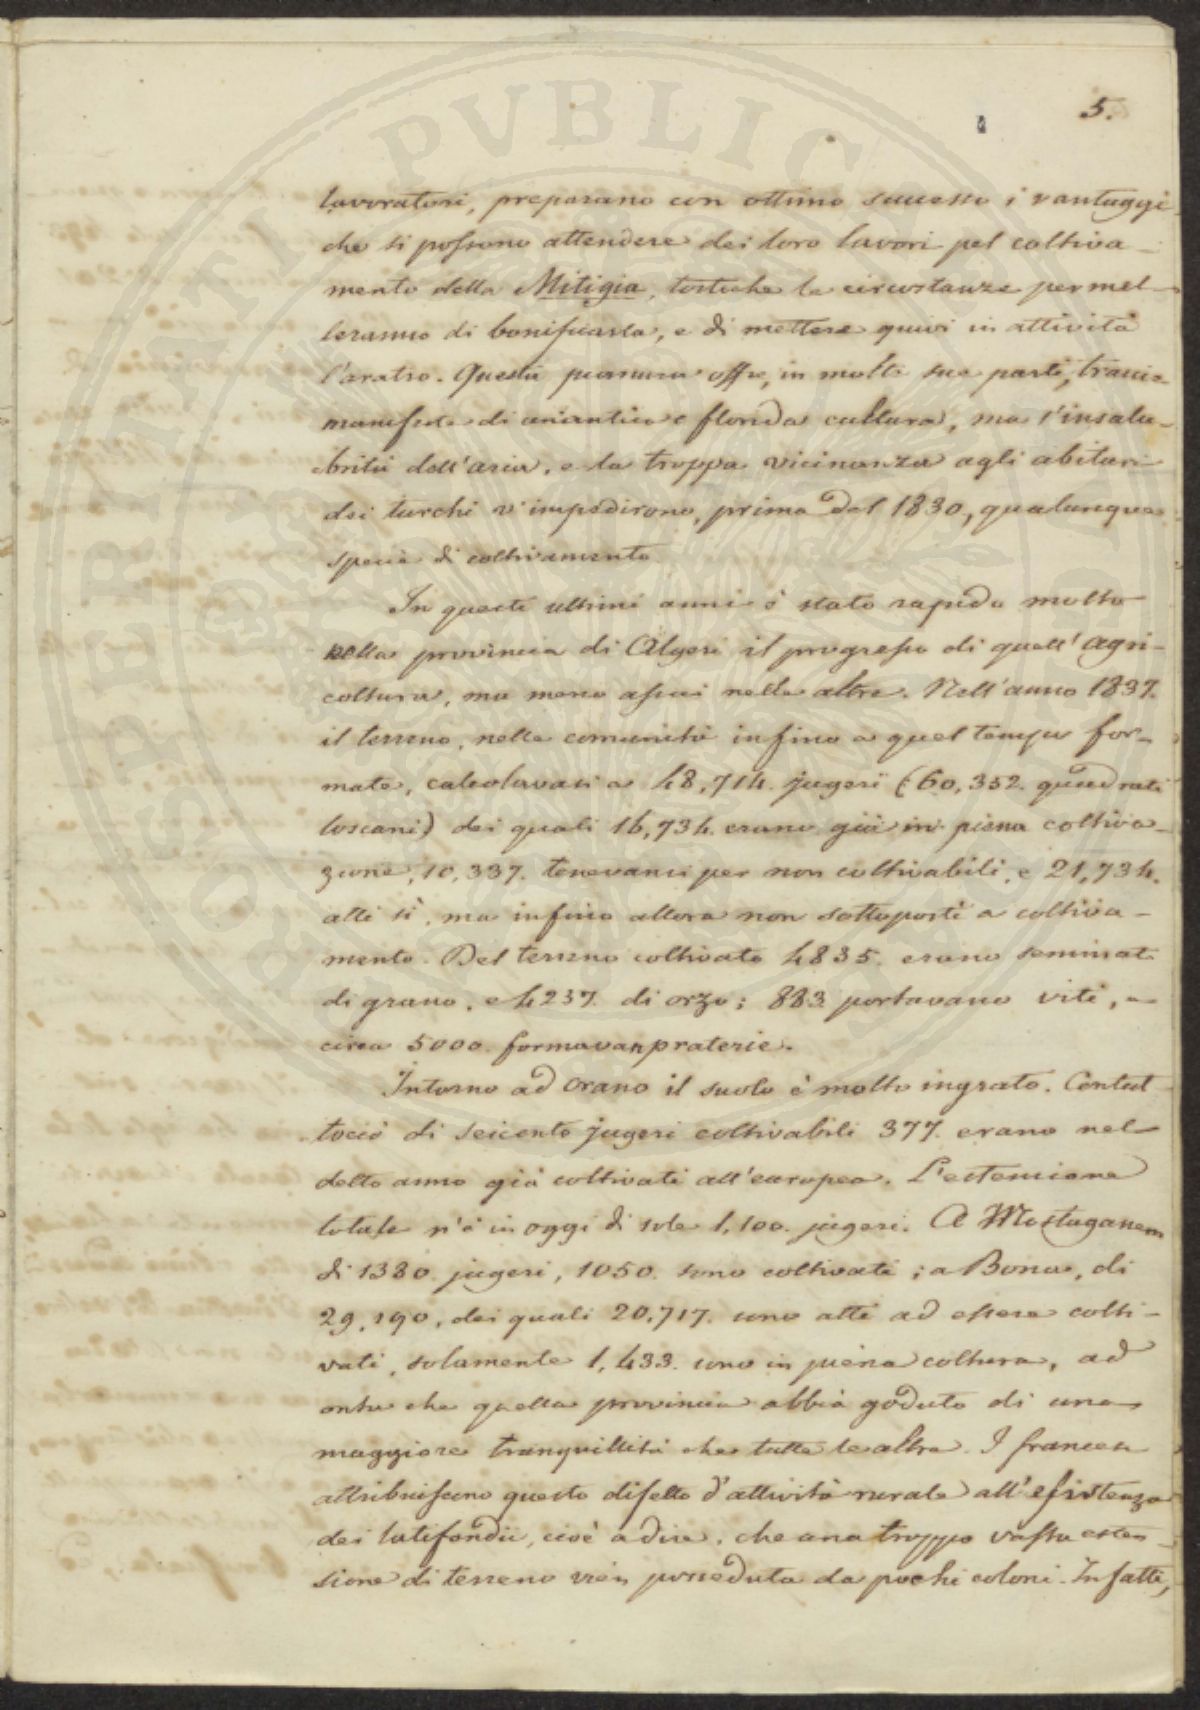 5.
lavoratori, preparano con ottimo successo i vantaggi
che si possono attendere dei loro lavori pel coltiva-
mento della Mitigia, tostoche le circostanze permet-
teranno di bonificarla, e di mettere quivi in attività
l'aratro. Questa pianura offre, in molte sue parti, traccie
manifeste di un'antica e florida cultura, ma l'insalu-
brità dell'aria, e la troppa vicinanza agli abituri
dei turchi v'impedirono, prima del 1830, qualunque
specie di coltivamento.
In questi ultimi anni è stato rapido molto
nella provincia di Algeri il progresso di quell'agri-
coltura, ma meno assai nelle altre. Nell'anno 1837.
il terreno, nelle comunità infino a quel tempo for-
mate, calcolavasi a 48,714. jugeri (60,352. quadrati
toscani) dei quali 16,734. erano già in piena coltiva-
zione, 10,337. tenevansi per non coltivabili, e 21,734.
atti sì, ma infino allora non sottoposti a coltiva-
mento. Del terreno coltivato 4835. erano seminati
di grano, e 4237. di orzo; 883. portavano viti, e
circa 5000. formavan praterie.
Intorno ad Orano il suolo è molto ingrato. Contut-
tociò di seicento jugeri coltivabili 377. erano nel
detto anno già coltivati all'europea. L'estensione
totale n'è in oggi di sole 1,100. jugeri. A Mostaganem
di 1380. jugeri, 1050. sono coltivati; a Bona, di
29,190, dei quali 20,717. sono atti ad essere colti-
vati, solamente 1,433. sono in piena coltura, ad
onta che quella provincia abbia goduto di una
maggiore tranquillità che tutte le altre. I francesi
attribuiscono questo difetto d'attività rurale all'esistenza
dei latifondii, cioè a dire, che una troppo vasta esten-
sione di terreno vien posseduta da pochi coloni. In fatti,